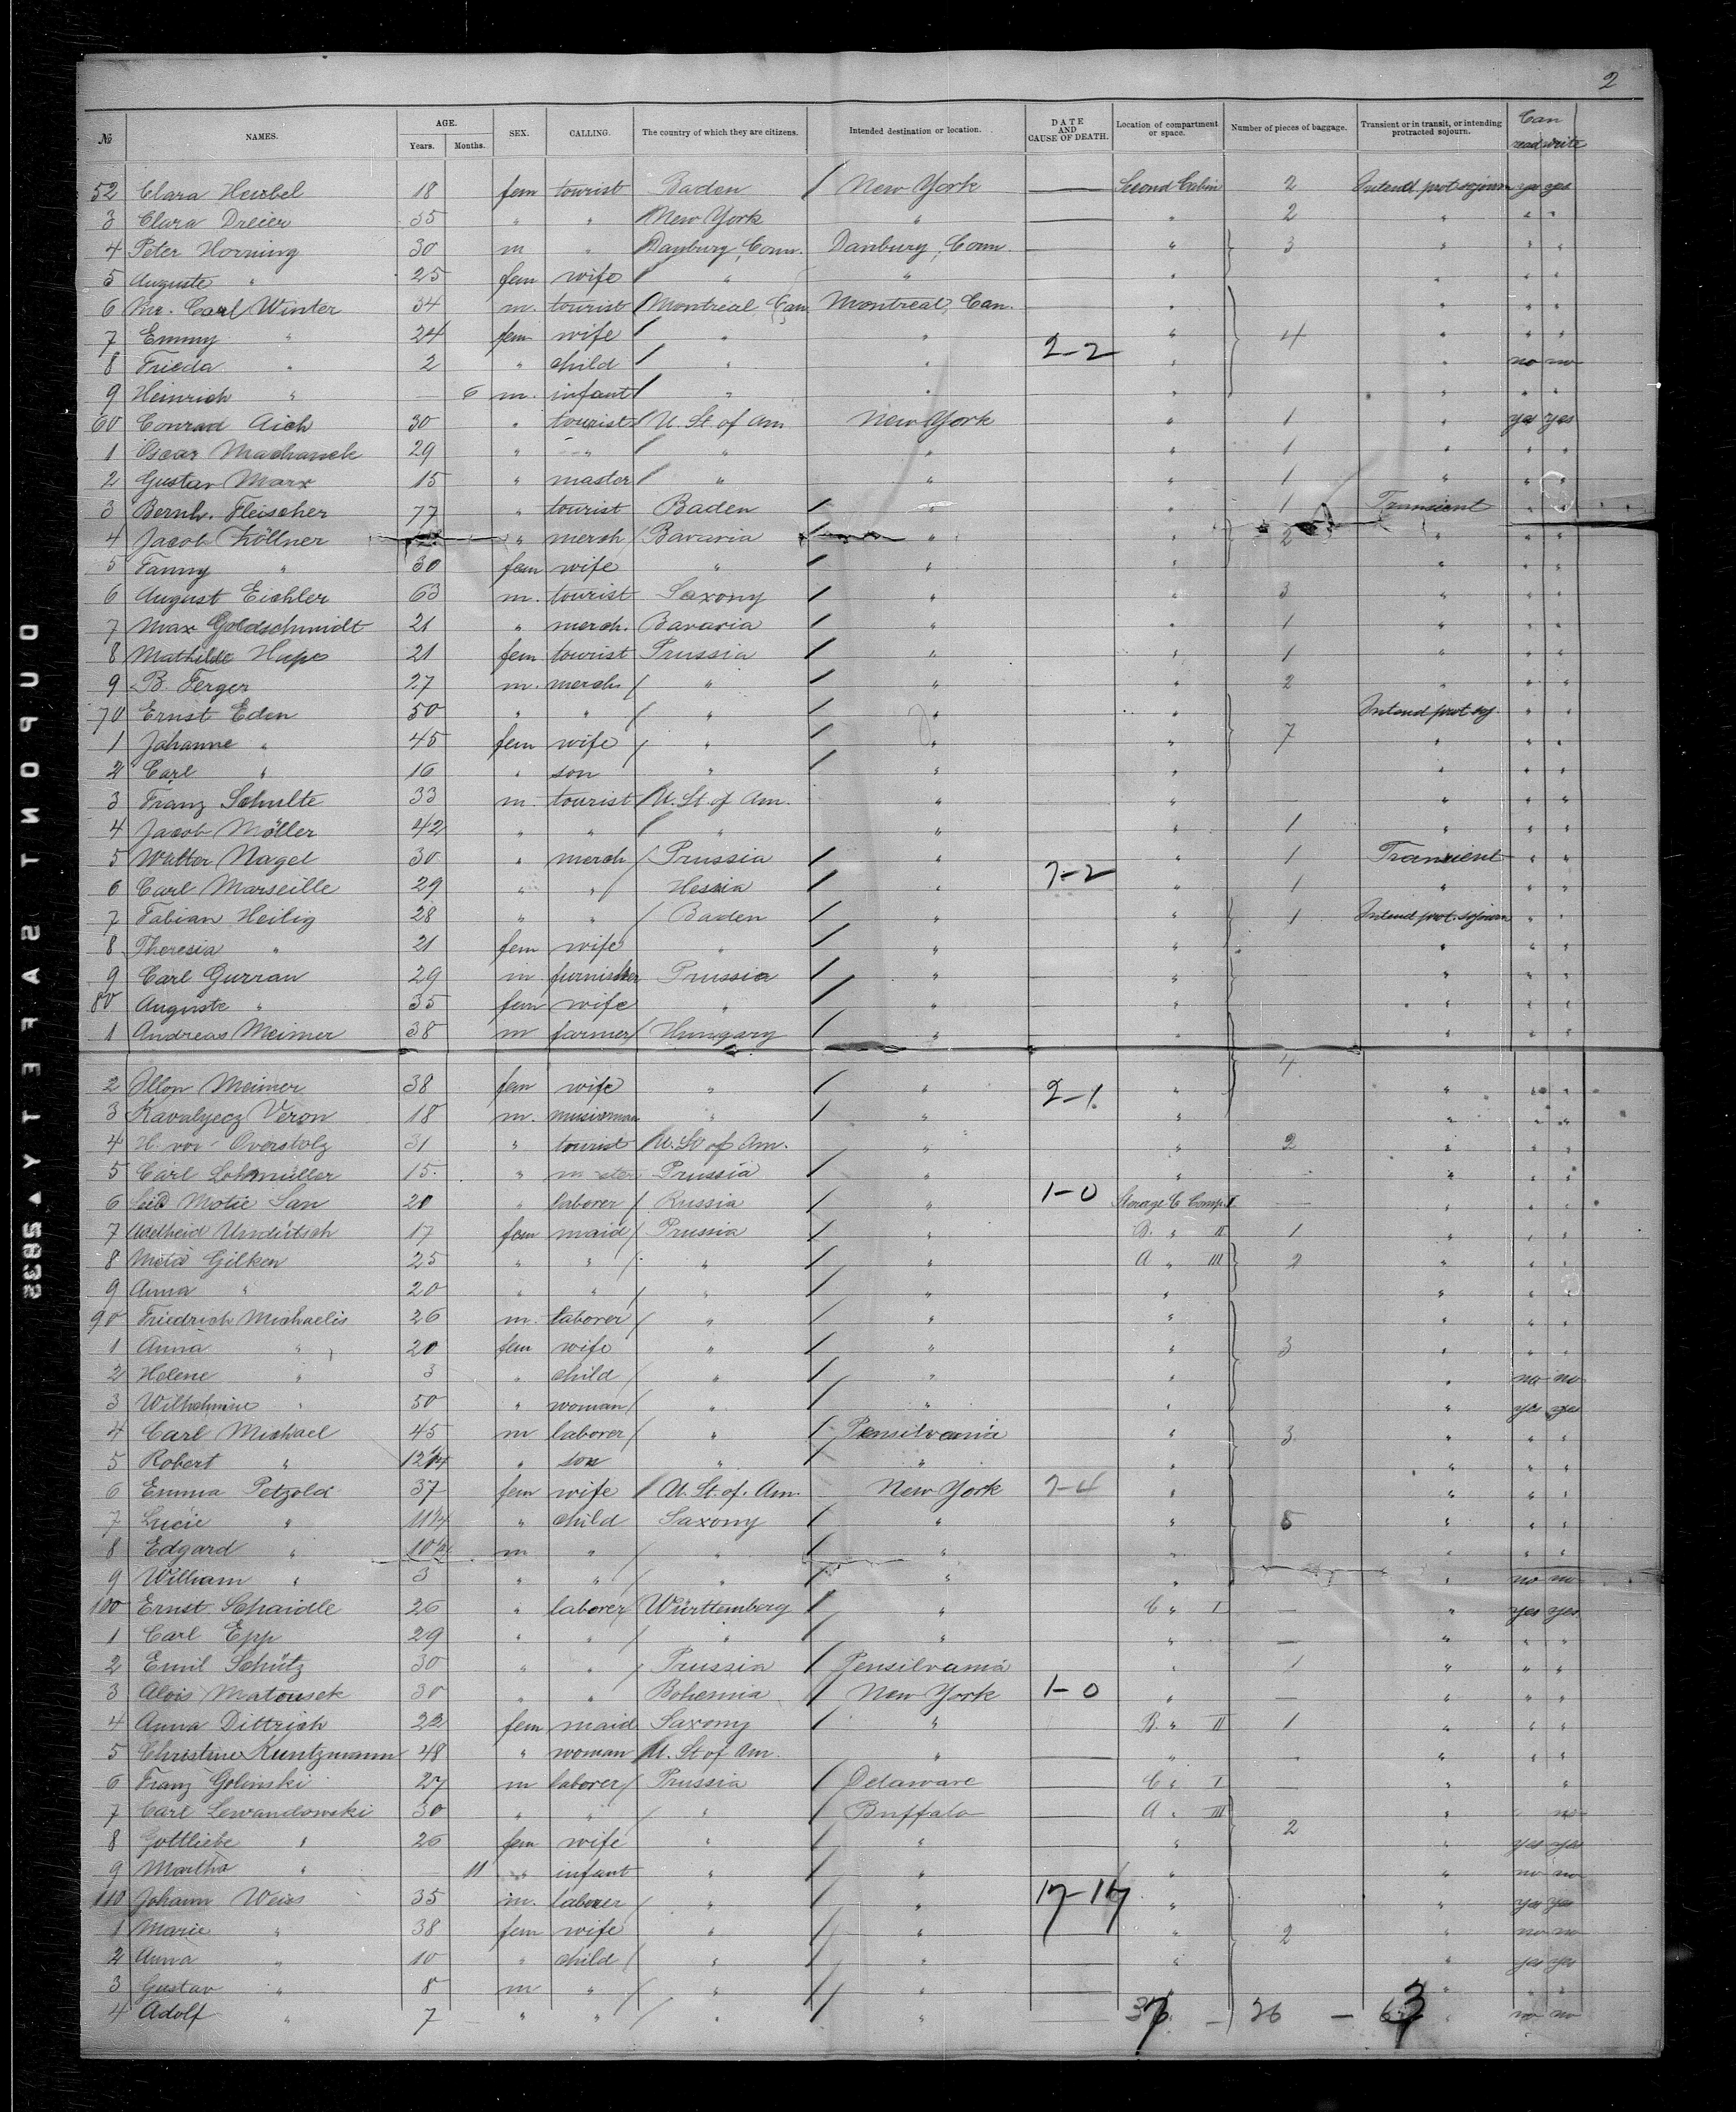 2
№ NAMES. AGE. Years. Months. SEX. CALLING. The country of which they are citizens. Intended destination or location. DATE AND CAUSE OF DEATH. Location of compartment or space. Number of pieces of baggage. Transient or in transit, or intending protracted sojourn. Can read write
52 Clara Heubel 18 fem tourist Baden / New York — Second Cabin 2 Intend prot sojourn yes yes
3 Clara Dreier 35 " " New York " — " 2 " " "
4 Peter Horning 30 m " Danbury, Conn. Danbury, Conn. — " 3 " " "
5 Auguste " 25 fem wife / " " — " " " "
6 Mr. Carl Winter 34 m. tourist Montreal Can. Montreal, Can. " " " "
7 Emmy " 24 fem wife / " " 2-2 " 4 " " "
8 Frieda " 2 " child / " " " " no no
9 Heinrich " — 6 m. infant / " " " " " "
60 Conrad Aich 30 " tourist U. St. of Am New York " 1 " yes yes
1 Oscar Machanek 29 " " / " " " 1 " " "
2 Gustav Marx 15 " master / " " " 1 " " "
3 Bernh. Fleischer 77 " tourist Baden / " " 1 Transient " "
4 Jacob Zöllner " merch / Bavaria " " 2 " " "
5 Fanny " 30 fem wife " / " " " " "
6 August Eichler 63 m. tourist Saxony / " " 3 " " "
7 Max Goldschmidt 21 " merch. Bavaria / " " 1 " " "
8 Mathilde Hupe 21 fem tourist Prussia / " " 1 " " "
9 B. Ferger 27 m. merch / " / " " 2 " " "
70 Ernst Eden 50 " " / " / " " Intend prot soj. " "
1 Johanne " 45 fem wife / " / " " 7 " " "
2 Carl " 16 " son " / " " " " "
3 Franz Schulte 33 m. tourist U. St. of Am. " " — " " "
4 Jacob Möller 42 " " / " " " 1 " " "
5 Walter Nagel 30 " merch / Prussia / " " 1 Transient " "
6 Carl Marseille 29 " " / Hessia / " 7-2 " 1 " " "
7 Fabian Heilig 28 " " / Baden / " " 1 Intend prot. sojourn " "
8 Theresia " 21 fem wife " / " " " " "
9 Carl Gurran 29 m. furnisher Prussia / " " " " "
80 Auguste " 35 fem wife " / " " " " "
1 Andreas Meimer 38 m farmer / Hungary / " " 4 " " "
2 Meimer 38 fem wife " / " 2-1 " " " "
3 Veron 18 m. " / " " " " "
4 H. von Overstolz 31 " tourist U. St of Am. " " 2 " " "
5 Carl Lohmüller 15 " Prussia / " " " " "
6 Motie San 20 " laborer / Russia / " 1-0 Storage C Comp. I — " " "
7 Adelheid Undütsch 17 fem maid / Prussia / " B. " II 1 " " "
8 Meta Gilken 25 " " / " / " A " III 2 " " "
9 Anna " 20 " " / " / " " " " "
90 Friedrich Michaelis 26 m. laborer / " / " " " " "
1 Anna " 20 fem wife " / " " 3 " " "
2 Helene " 3 " child / " / " " " no no
3 Wilhelmine " 50 " woman / " / " " " yes yes
4 Carl Michael 45 m laborer / " / Pensilvania " 3 " " "
5 Robert " " son " / " " " " "
6 Emma Petzold 37 fem wife / U. St. of. Am. New York 7-4 " " " "
7 Lucie " 11 " child Saxony / " " 5 " " "
8 Edgard " 10 m " / " / " " " " "
9 William " 3 " " / " / " " " no no
100 Ernst Schaidle 26 " laborer / Württemberg / " C " I — " yes yes
1 Carl Epp 29 " " / " / " " — " " "
2 Emil Schütz 30 " " / Prussia / Pensilvania " 1 " " "
3 Alois Matousek 30 " " Bohemia / New York 1-0 " — " " "
4 Anna Dittrich 22 fem maid Saxony / " B. " II 1 " " "
5 Christine Kuntzmann 48 " woman U. St of Am. " — " — " " "
6 Franz Golinski 27 m laborer / Prussia / Delaware — C " I — " "
7 Carl Lewandowski 30 " " / " / Buffalo — A " III " no
8 Gottliebe " 26 fem wife " / " — " 2 " yes yes
9 Martha " — 11 " infant " / " — " " no no
110 Johann Weiss 35 m. laborer / " / " 17-17 " " yes yes
1 Marie " 38 fem wife " / " — " 2 " no no
2 Anna " 10 " child / " / " — " " yes yes
3 Gustav " 8 m " / " / " — " " "
4 Adolf " 7 " " / " / " — 37 — 26 — 63 " no no
DUPONT SAFETY ▲ 5833